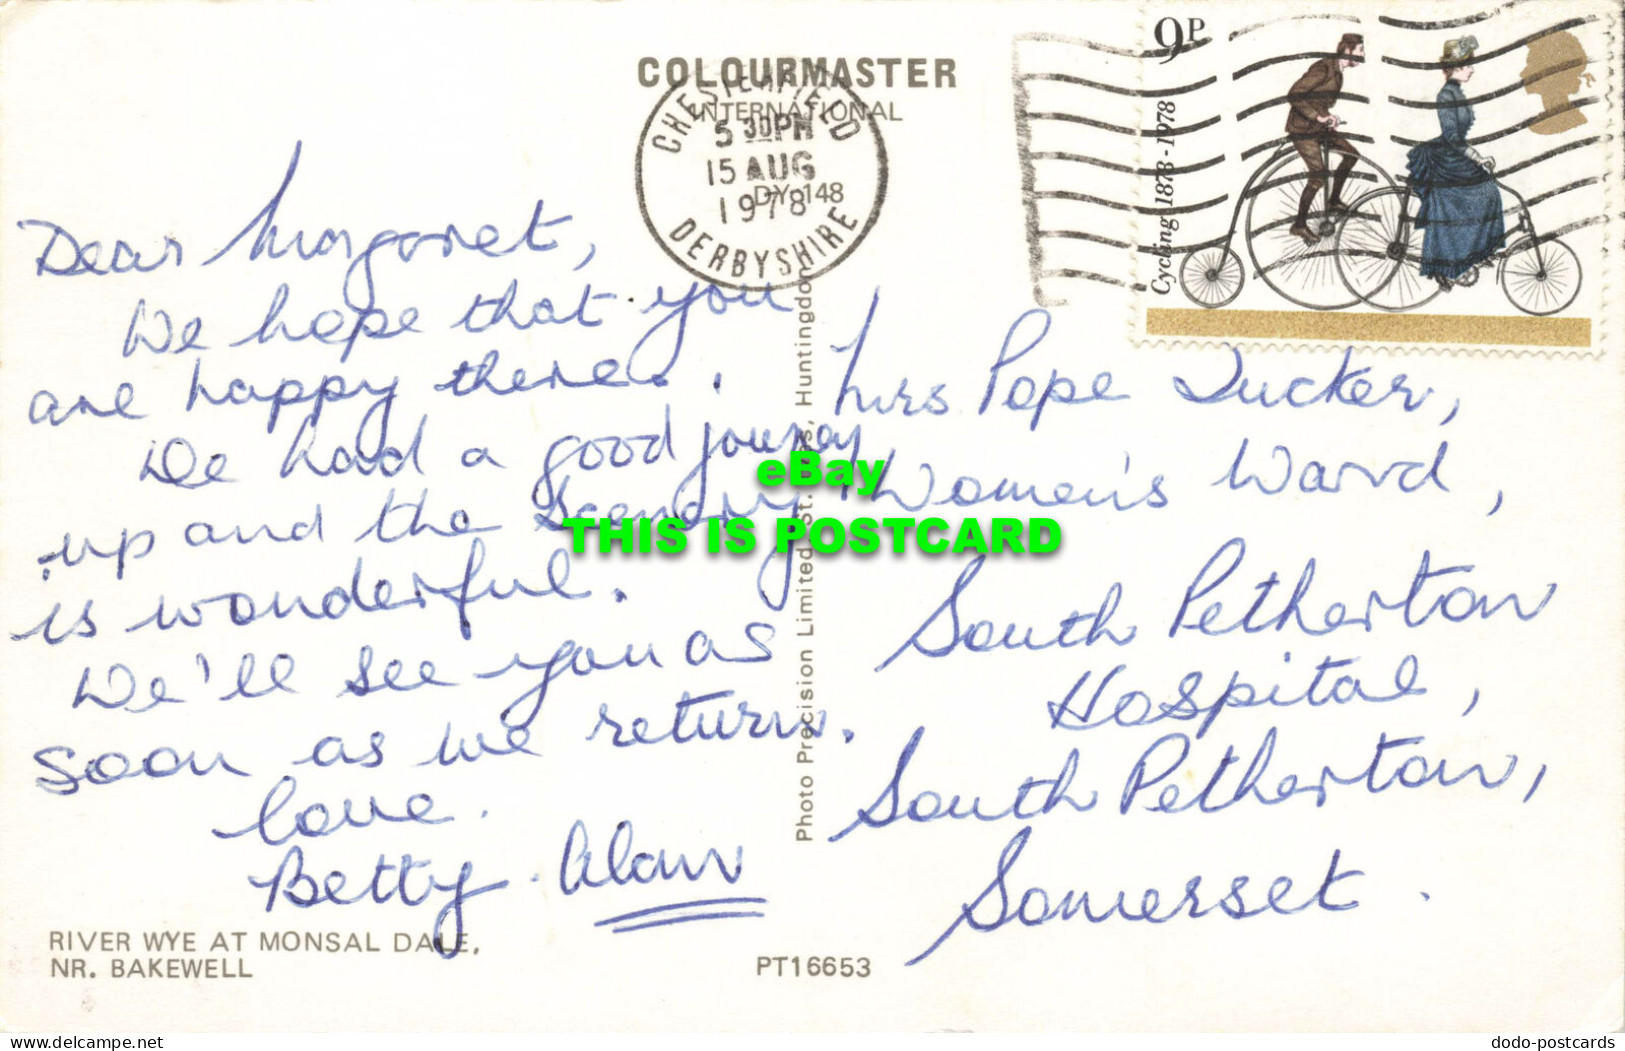 COLOURMASTER
INTERNATIONAL
CHESTERFIELD
5 30PM
15 AUG
1978
DERBYSHIRE
DY 148
9P
Cycling 1878-1978
Dear Margaret,
We hope that you
are happy there.
We had a good journey
up and the scenery
is wonderful.
We'll see you as
soon as we return.
love.
Betty. Alan
Mrs Pope Tucker,
Women's Ward,
South Petherton
Hospital,
South Petherton,
Somerset.
Photo Precision Limited, St. Ives, Huntingdon
eBay
THIS IS POSTCARD
RIVER WYE AT MONSAL DALE,
NR. BAKEWELL
PT16653
delcampe.net
dodo-postcards